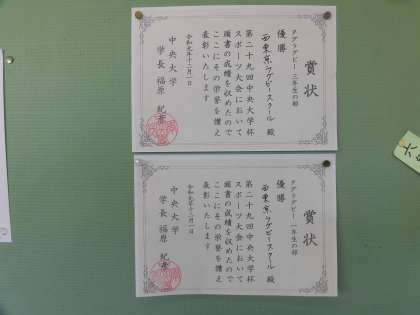 賞状
タグラグビー 三年生の部
優勝
西東京ラグビースクール 殿
第二十九回中央大学杯
スポーツ大会において
頭書の成績を収めたので
ここにその栄誉を讃え
表彰いたします
令和元年十二月一日
中央大学
学長 福原 紀彦
賞状
タグラグビー 一年生の部
優勝
西東京ラグビースクール 殿
第二十九回中央大学杯
スポーツ大会において
頭書の成績を収めたので
ここにその栄誉を讃え
表彰いたします
令和元年十二月一日
中央大学
学長 福原 紀彦